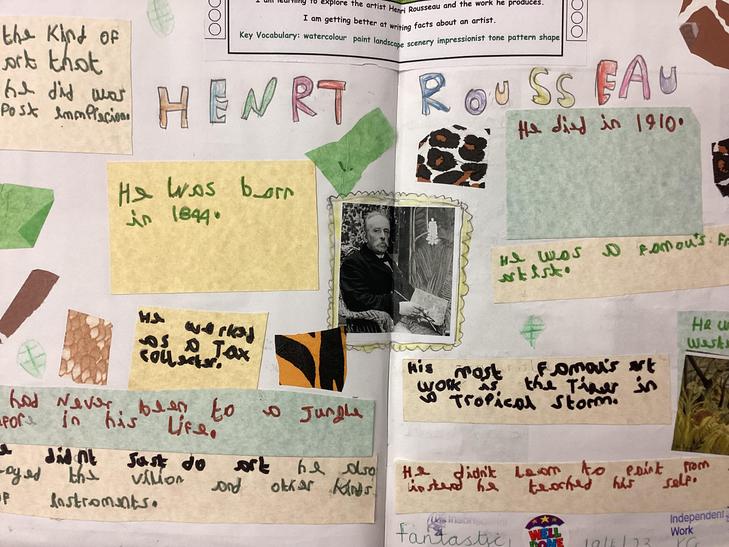 I am learning to explore the artist Henri Rousseau and the work he produces.
I am getting better at writing facts about an artist.
Key Vocabulary: watercolour paint landscape scenery impressionist tone pattern shape
the Kind of
art that
he did was
Post Immplecion.
HENRI ROUSSEAU
He was born
in 1844.
He died in 1910.
He was a famou's Fr
artist.
He worked
as a Tax
collecter.
His most famou's art
work is the Tiger in
a Tropical Storm.
had Never been to a Jungle
efore in his Life.
e didnt Just do art he also
layed the vilion and other kinds
of Instroments.
He didn't Learn to paint from
instead he teached his self.
Fantastic!
WELL DONE
19/6/23
Independent
Work